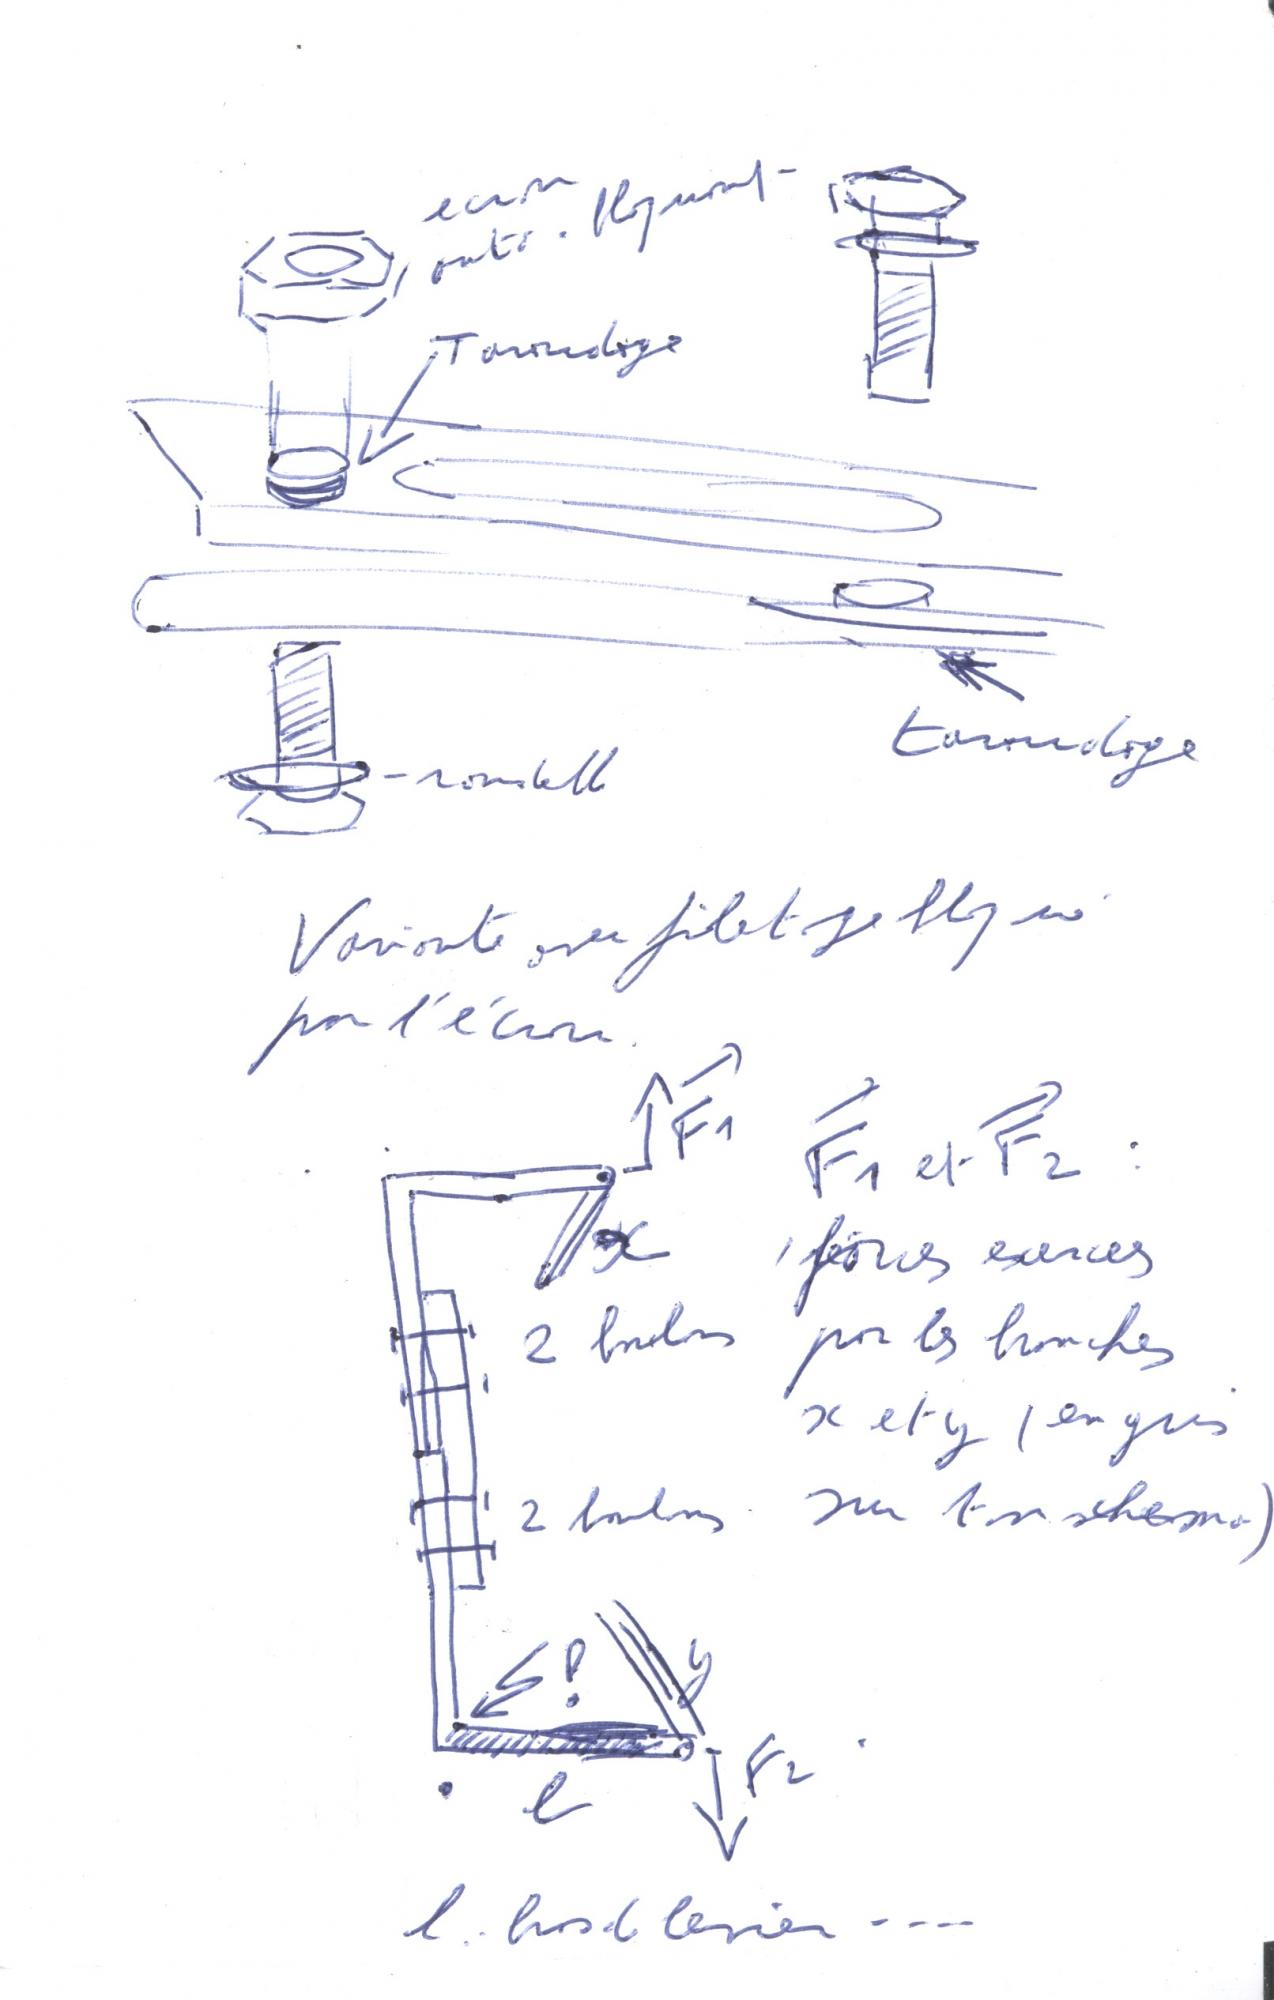 ecrou
auto-bloquant
Taraudage
taraudage
rondelle
Variante avec filetage bloqué
par l'écrou.
F1
F1 et F2 :
forces exercées
par les branches
x et y (en gris
sur ton schéma)
x
2 boulons
2 boulons
!
y
F2
l
l : bras de levier ----